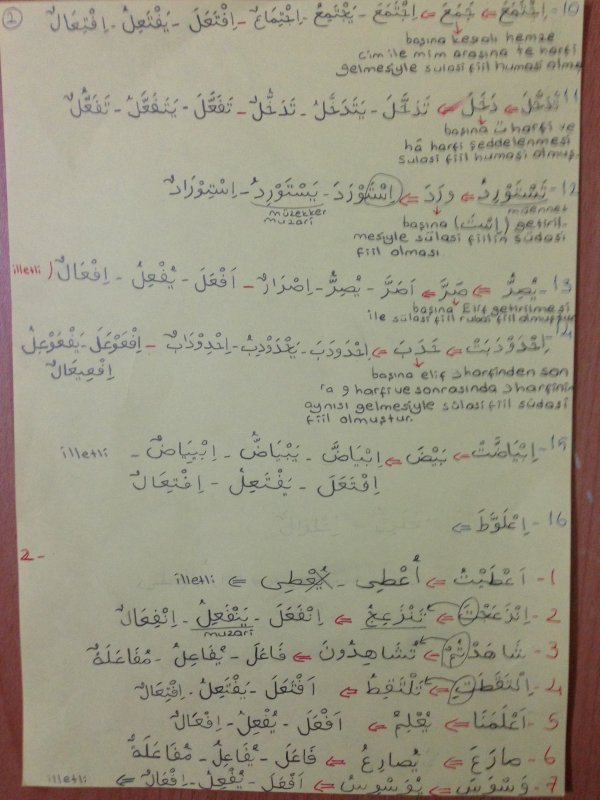 2
10- اِجْتَمَعَ ⇐ جَمَعَ ⇐ اِجْتَمَعَ - يَجْتَمِعُ - اِجْتِمَاعٌ - اِفْتَعَلَ - يَفْتَعِلُ - اِفْتِعَالٌ
başına kesralı hemze
cim ile mim arasına te harfi
gelmesiyle sülasi fiil humasi olmuş
11- تَدَخَّلَ ⇐ دَخَلَ ⇐ تَدَخَّلَ - يَتَدَخَّلُ - تَدَخُّلٌ - تَفَعَّلَ - يَتَفَعَّلُ - تَفَعُّلٌ
başına ت harfi ve
hâ harfi şeddelenmesi
sülasi fiil humasi olmuş.
12- تَسْتَوْرِدُ ⇐ وَرَدَ ⇐ اِسْتَوْرَدَ - يَسْتَوْرِدُ - اِسْتِوْرَادٌ
müennet
müzekker
muzari
başına (اِسْت) getiril-
mesiyle sülasi fiilin südasi
fiil olması.
13- يُصِرُّ ⇐ صَرَّ ⇐ اَصَرَّ - يُصِرُّ - اِصْرَارٌ - اَفْعَلَ - يُفْعِلُ - اِفْعَالٌ ) illetli
başına Elif getirilmesi
ile sülasi fiil rubai fiil olmuştur
14- اِحْدَوْدَبَتْ ⇐ حَدَبَ ⇐ اِحْدَوْدَبَ - يَحْدَوْدِبُ - اِحْدِوْدَابٌ - اِفْعَوْعَلَ - يَفْعَوْعِلُ
اِفْعِيعَالٌ
başına elif د harfinden son
ra و harfi ve sonrasında د harfinin
aynısı gelmesiyle sülasi fiil südasi
fiil olmuştur.
15- اِبْيَاضَّتْ ⇐ بَيْضَ ⇐ اِبْيَاضَّ - يَبْيَاضُّ - اِبْيِيَاضٌ - illetli
اِفْتَعَلَ - يَفْتَعِلُ - اِفْتِعَالٌ
16- اِعْلَوَّطَ ⇐
2-
1- اَعْطَيْتُ ⇐ أُعْطِى - يُعْطِى ⇐ illetli
2- اِنْزَعَجْتَ ⇐ تَنْزَعِجُ ⇐ اِنْفَعَلَ - يَنْفَعِلُ - اِنْفِعَالٌ
muzari
3- شَاهَدْتُمْ ⇐ تُشَاهِدُونَ ⇐ فَاعَلَ - يُفَاعِلُ - مُفَاعَلَةٌ
4- اِلْتَقَطَتِ ⇐ تَلْتَقِطُ ⇐ اِفْتَعَلَ - يَفْتَعِلُ - اِفْتِعَالٌ
5- اَعْلَمَنَا ⇐ يُعْلِمُ ⇐ اَفْعَلَ - يُفْعِلُ - اِفْعَالٌ
6- صارَعَ ⇐ يُصارِعُ ⇐ فَاعَلَ - يُفَاعِلُ - مُفَاعَلَةٌ
7- وَسْوَسَ ⇐ يُوَسْوِسُ ⇐ اَفْعَلَ - يُفْعِلُ - اِفْعَالٌ ⇐ illetli